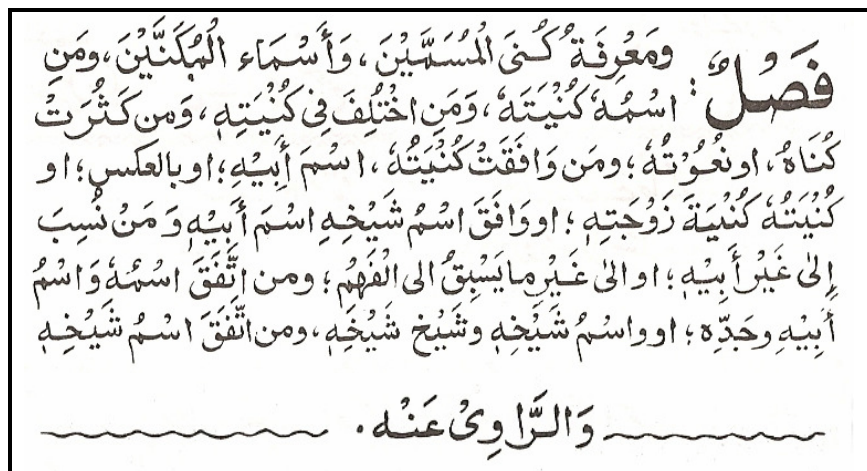 فَصْلٌ: وَمَعْرِفَةُ كُنَى الْمُسَمَّيْنَ، وَأَسْمَاءِ الْمُكَنَّيْنَ، وَمَنِ
اسْمُهُ كُنْيَتُهُ، وَمَنِ اخْتُلِفَ فِي كُنْيَتِهِ، وَمن كَثُرَتْ
كُنَاهُ، او نُعُوْتُهُ؛ ومَن وَافَقَتْ كُنْيَتُهُ، اسْمَ أَبِيْهِ؛ او بالعكسِ؛ او
كُنْيَتُهُ كُنْيَةَ زَوْجَتِهِ؛ او وَافَقَ اسْمُ شَيْخِهِ اسْمَ أَبِيْهِ وَ مَنْ نُسِبَ
إِلىٰ غَيْرِ أَبِيْهِ؛ او الىٰ غَيْرِ ما يَسْبِقُ الى الْفَهْمِ؛ ومن اتَّفَقَ اسْمُهُ وَاسْمُ
أَبِيْهِ وجَدِّه؛ او واسْمُ شَيْخِهِ وشَيْخِ شَيْخِهِ، ومن اتَّفَقَ اسْمُ شَيْخِهِ
وَالرَّاوِىْ عَنْهُ.